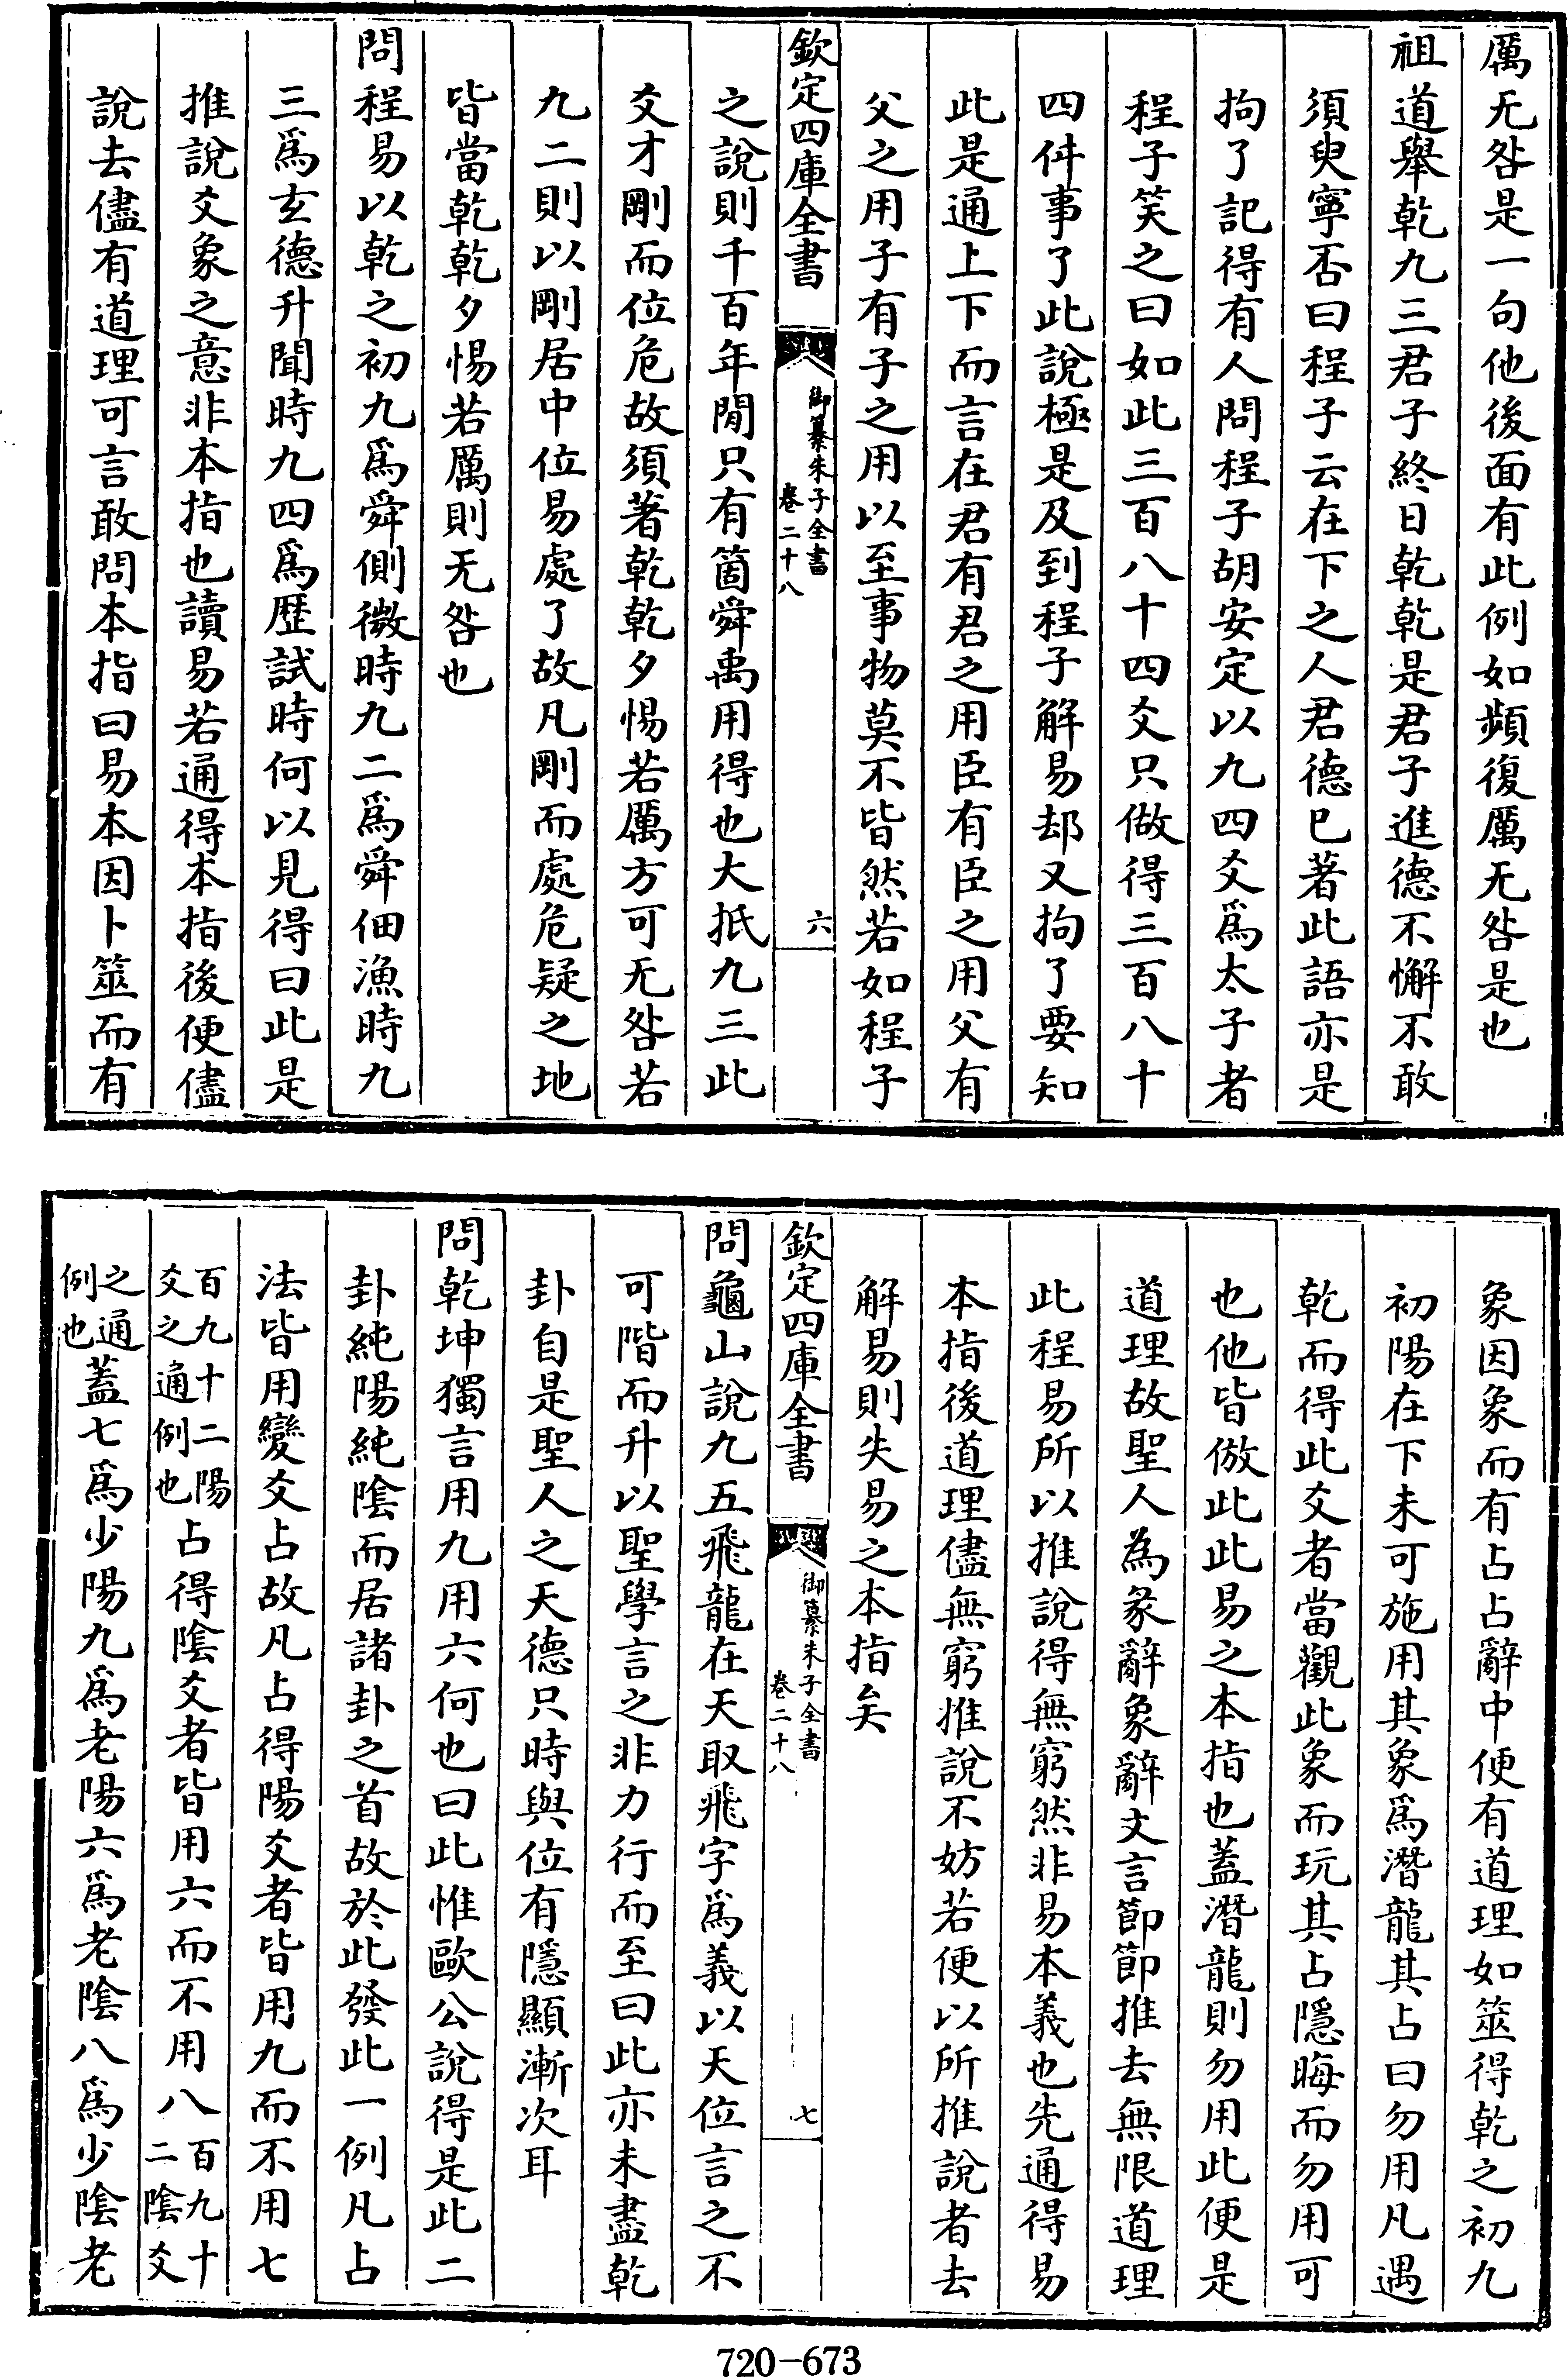 厲无咎是一句他後面有此例如頻復厲无咎是也
祖道舉乾九三君子終日乾乾是君子進德不懈不敢
須臾寧否曰程子云在下之人君德已著此語亦是
拘了記得有人問程子胡安定以九四爻爲太子者
程子笑之曰如此三百八十四爻只做得三百八十
四件事了此說極是及到程子解易却又拘了要知
此是通上下而言在君有君之用臣有臣之用父有
父之用子有子之用以至事物莫不皆然若如程子
欽定四庫全書
御纂朱子全書
卷二十八
六
之說則千百年間只有箇舜禹用得也大抵九三此
爻才剛而位危故須著乾乾夕惕若厲方可无咎若
九二則以剛居中位易處了故凡剛而處危疑之地
皆當乾乾夕惕若厲則无咎也
問程易以乾之初九爲舜側微時九二爲舜佃漁時九
三爲玄德升聞時九四爲歷試時何以見得曰此是
推說爻象之意非本指也讀易若通得本指後便儘
說去儘有道理可言敢問本指曰易本因卜筮而有
象因象而有占占辭中便有道理如筮得乾之初九
初陽在下未可施用其象爲潛龍其占曰勿用凡遇
乾而得此爻者當觀此象而玩其占隱晦而勿用可
也他皆倣此此易之本指也蓋潛龍則勿用此便是
道理故聖人為彖辭象辭文言節節推去無限道理
此程易所以推說得無窮然非易本義也先通得易
本指後道理儘無窮推說不妨若便以所推說者去
解易則失易之本指矣
欽定四庫全書
御纂朱子全書
卷二十八
七
問龜山說九五飛龍在天取飛字爲義以天位言之不
可階而升以聖學言之非力行而至曰此亦未盡乾
卦自是聖人之天德只時與位有隱顯漸次耳
問乾坤獨言用九用六何也曰此惟歐公說得是此二
卦純陽純陰而居諸卦之首故於此發此一例凡占
法皆用變爻占故凡占得陽爻者皆用九而不用七
百九十二陽爻之通例也占得陰爻者皆用六而不用八百九十二陰爻
之通例也蓋七爲少陽九爲老陽六爲老陰八爲少陰老
720-673